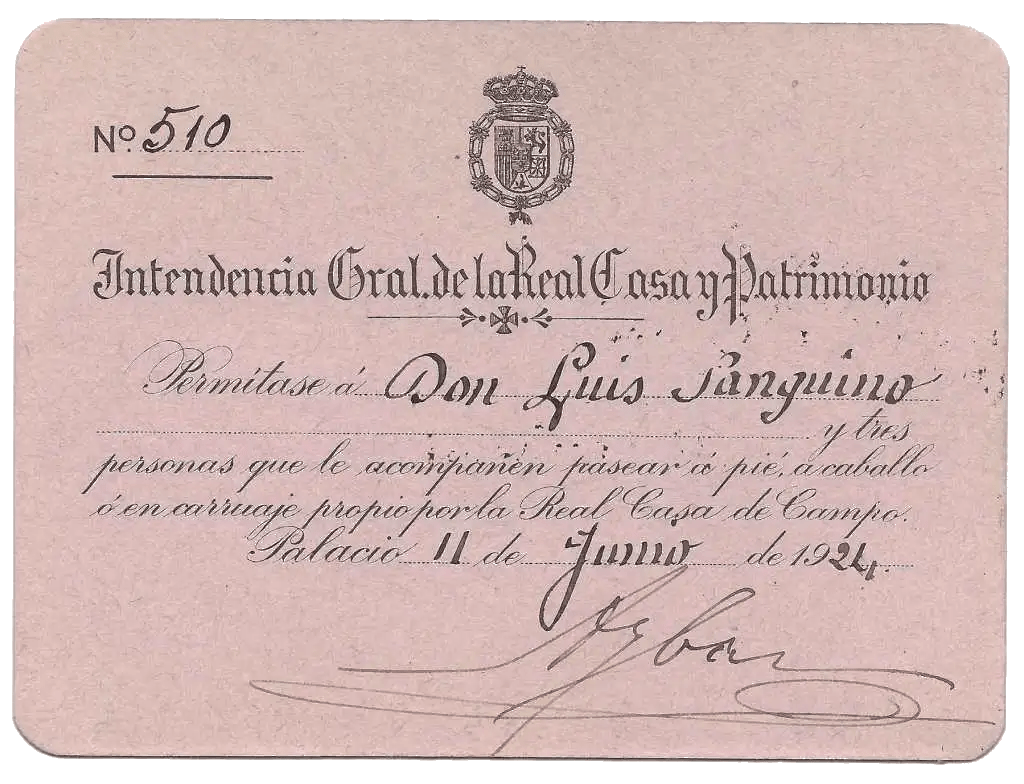 Nº 510
Intendencia Gral. de la Real Casa y Patrimonio
Permítase á Don Luis Sanguino
y tres
personas que le acompañen pasear á pié, a caballo
ó en carruaje propio por la Real Casa de Campo.
Palacio 11 de Junio de 1924,